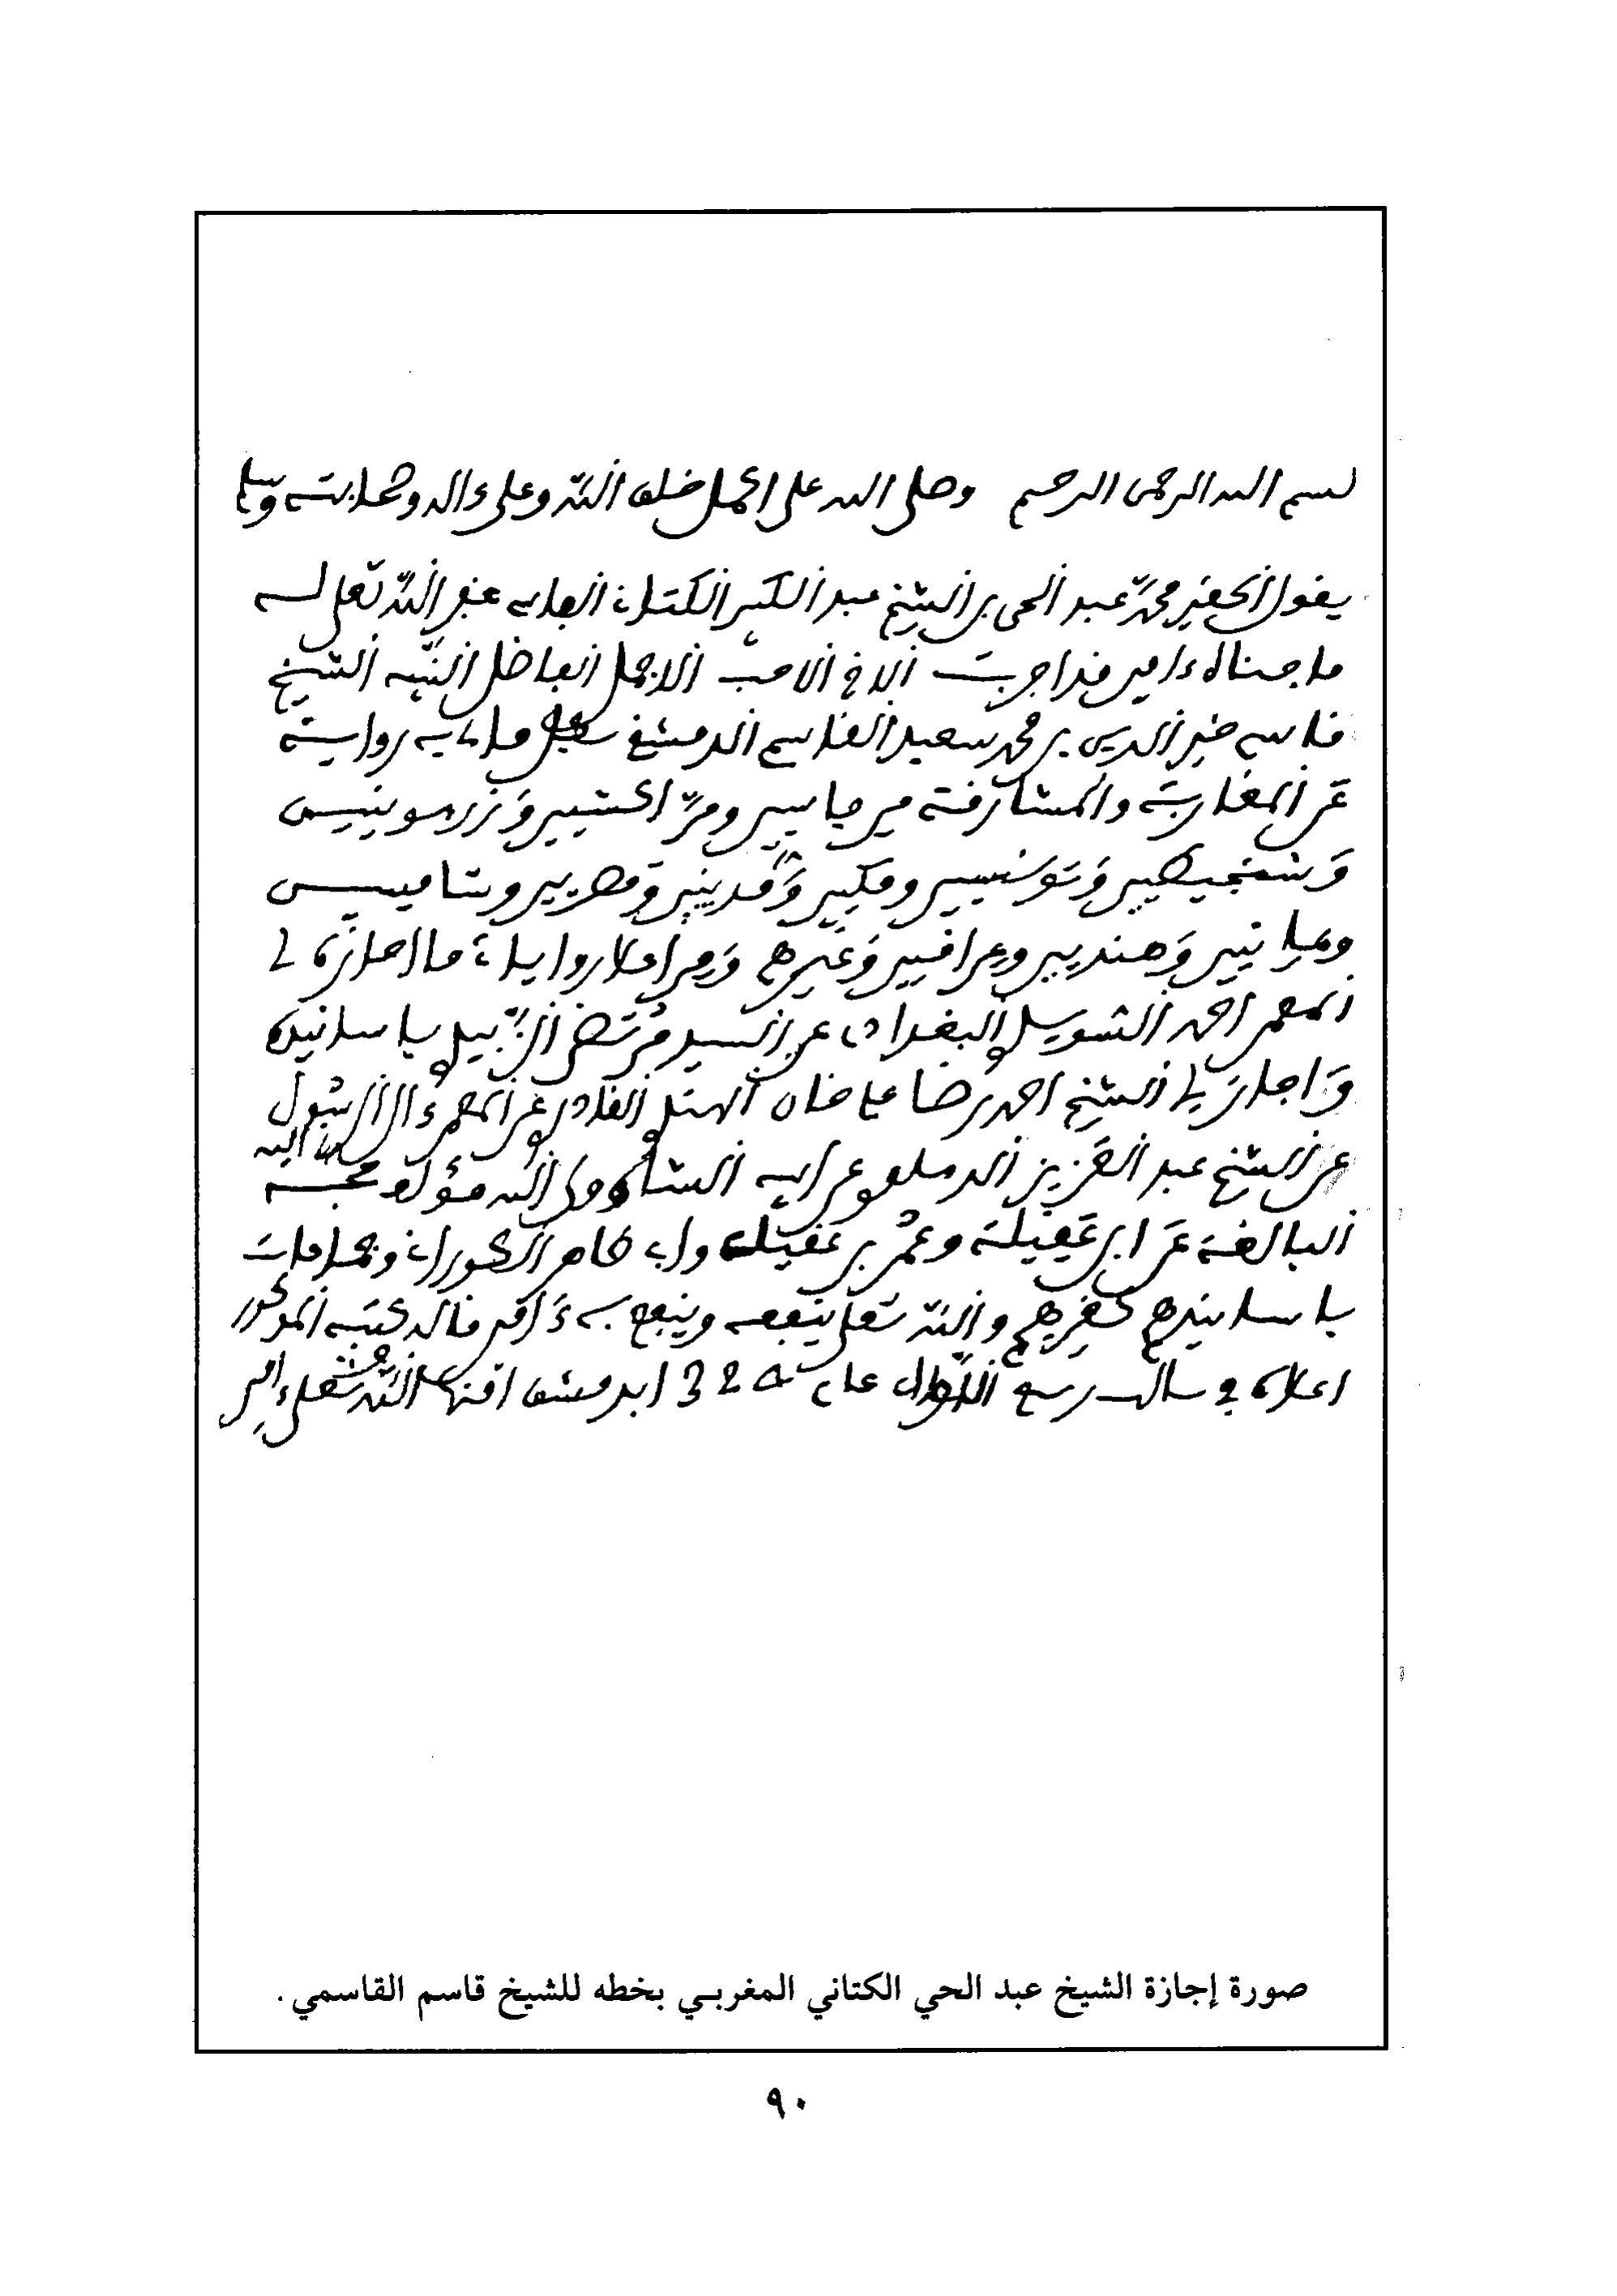 بسم الله الرحمن الرحيم وصلى الله على اكمل خلق الله وعلى ءاله وصحابته وسلم
يقول الحقير محمد عبد الحي بن الشيخ عبد الكبير الكتاني الفاسي غفر الله تعلى له
ما جناه ءامين قد اجزت الاخ الاحب الاجل الفاضل النبيه الشيخ
قاسم خير الدين بن محمد سعيد القاسمي الدمشقي بكل ما لي به رواية
عن المغاربة والمشارقة من فاسيين ومراكشيين وزرهونيين
وشنجيطيين وتونسيين ومكيين ومدنيين ومصريين وشاميين
ويمانيين وهنديين وعراقيين وغيرهم ومن اعلا رواياتي ما اجازني
المعمر احمد السويدي البغدادي عن السيد مرتضى الزبيدي باسانيده
واجازني الشيخ احمد رضا علي خان الهندي القادري عن المعمر ءال الرسول
عن الشيخ عبد العزيز الدهلوي عن ابيه الشاه ولي الله مؤلف حجة الله
البالغة عن ابن عقيلة وعمر بن عقيل وابي طاهر الكوراني وجماعات
باسانيدهم والله تعلى ينفعه وينفع به ءامين قاله كتبه المذكور
اعلاه في ربيع عام 1324 بدمشق امنها الله تعلى ءامين
صورة إجازة الشيخ عبد الحي الكتاني المغربي بخطه للشيخ قاسم القاسمي .
٩٠